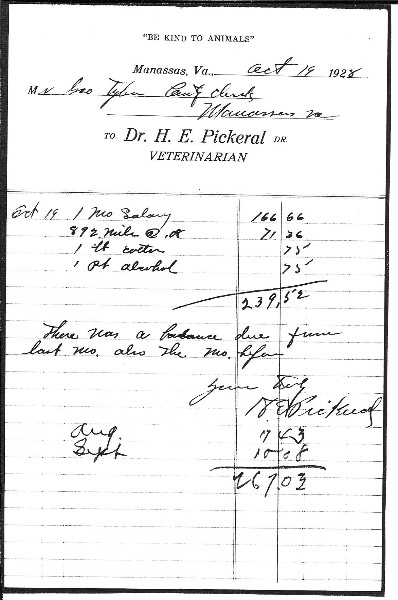 "BE KIND TO ANIMALS"
Manassas, Va., Oct 19 1928
Mr Geo Tyler County Clerk
Manassas Va
TO Dr. H. E. Pickeral DR.
VETERINARIAN
Oct 19 1 Mo Salary 166 66
892 mile @ .08 71 36
1 lb cotton 75
1 pt alcohol 75
239,52
There was a balance due from
last mo. also the mo. before
Yours Truly
H E Pickeral
Aug 17 43
Sept 10 08
267 03